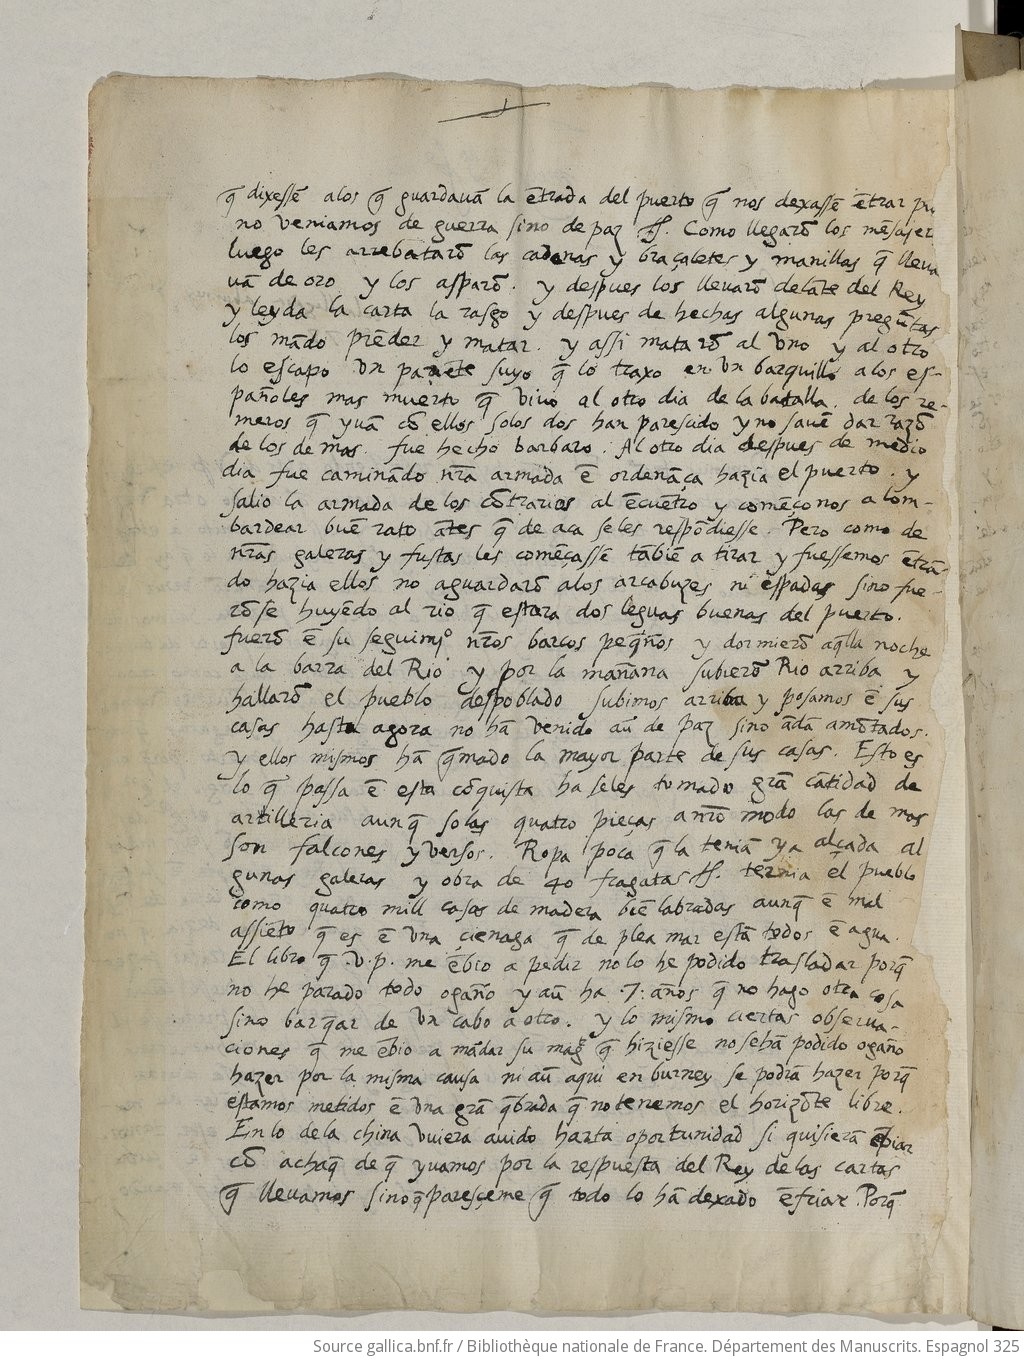 q̃ dixessẽ alos q̃ guardauã la ẽtrada del puerto q̃ nos dexassẽ ẽtrar
no veniamos de guerra sino de paz ff. Como llegarõ los mẽsajer
luego les arrebatarõ las cadenas y braçaletes y manillas q̃ lleua
uã de oro y los asparõ. y despues los lleuarõ delãte del Rey
y leyda la carta la rasgo y despues de hechas algunas pregũtas
los mãdo prẽder y matar. y assi matarõ al vno y al otro
lo escapo vn pariete suyo q̃ lo traxo en vn barquillo alos es-
pañoles mas muerto q̃ viuo al otro dia de la batalla. de los re-
meros q̃ yuã cõ ellos solos dos han parescido y no sauẽ dar razõ
de los de mas. fue hecho barbaro. Al otro dia despues de medio
dia fue caminãdo nr̃a armada ẽ ordenãça hazia el puerto. y
salio la armada de los cõtrarios al ẽcuẽtro y comẽço nos a lom-
bardear buẽ rato ãtes q̃ de aca se les respõdiesse. Pero como de
nr̃as galeras y fustas les comẽçassẽ tãbiẽ a tirar y fuessemos ẽtrã-
do hazia ellos no aguardarõ alos arcabuzes ni espadas sino fue-
rõse huyẽdo al rio q̃ estara dos leguas buenas del puerto.
fuerõ ẽ su seguimj° nr̃os barcos peq̃ños y dormierõ aq̃lla noche
a la barra del Rio y por la mañana subierõ Rio arriba y
hallarõ el pueblo despoblado subimos arriba y posamos ẽ sus
casas hasta agora no hã venido aũ de paz sino ãdã amõtados.
y ellos mismos hã q̃mado la mayor parte de sus casas. Esto es
lo q̃ passa ẽ esta cõquista ha seles tomado grã cãtidad de
artilleria aunq̃ solas quatro pieças a nr̃o modo las de mas
son falcones y versos. Ropa poca q̃ la teniã ya alçada al
gunas galeras y obra de 40 fragatas ff. ternia el pueblo
como quatro mill casas de madera biẽ labradas aunq̃ ẽ mal
assiẽto q̃ es ẽ vna çienaga q̃ de plea mar estã todos ẽ agua.
El libro q̃ .V.P. me ẽbio a pedir no lo he podido trasladar porq̃
no he parado todo ogaño y aũ ha .7. años q̃ no hago otra cosa
sino barq̃ar de vn cabo a otro. y lo mismo ciertas obserua-
ciones q̃ me ẽbio a mãdar su mag̃ q̃ hiziesse no se hã podido ogaño
hazer por la misma causa ni aũ aqui en burney se podrã hazer porq̃
estamos metidos ẽ vna grã q̃brada q̃ no tenemos el horizõte libre.
En lo de la china vuiera auido harta oportunidad si quisierã ẽbiar
cõ achaq̃ de q̃ yuamos por la respuesta del Rey de las cartas
q̃ lleuamos sino q̃ paresçeme q̃ todo lo hã dexado ẽfriar. Porq̃
Source gallica.bnf.fr / Bibliothèque nationale de France. Département des Manuscrits. Espagnol 325